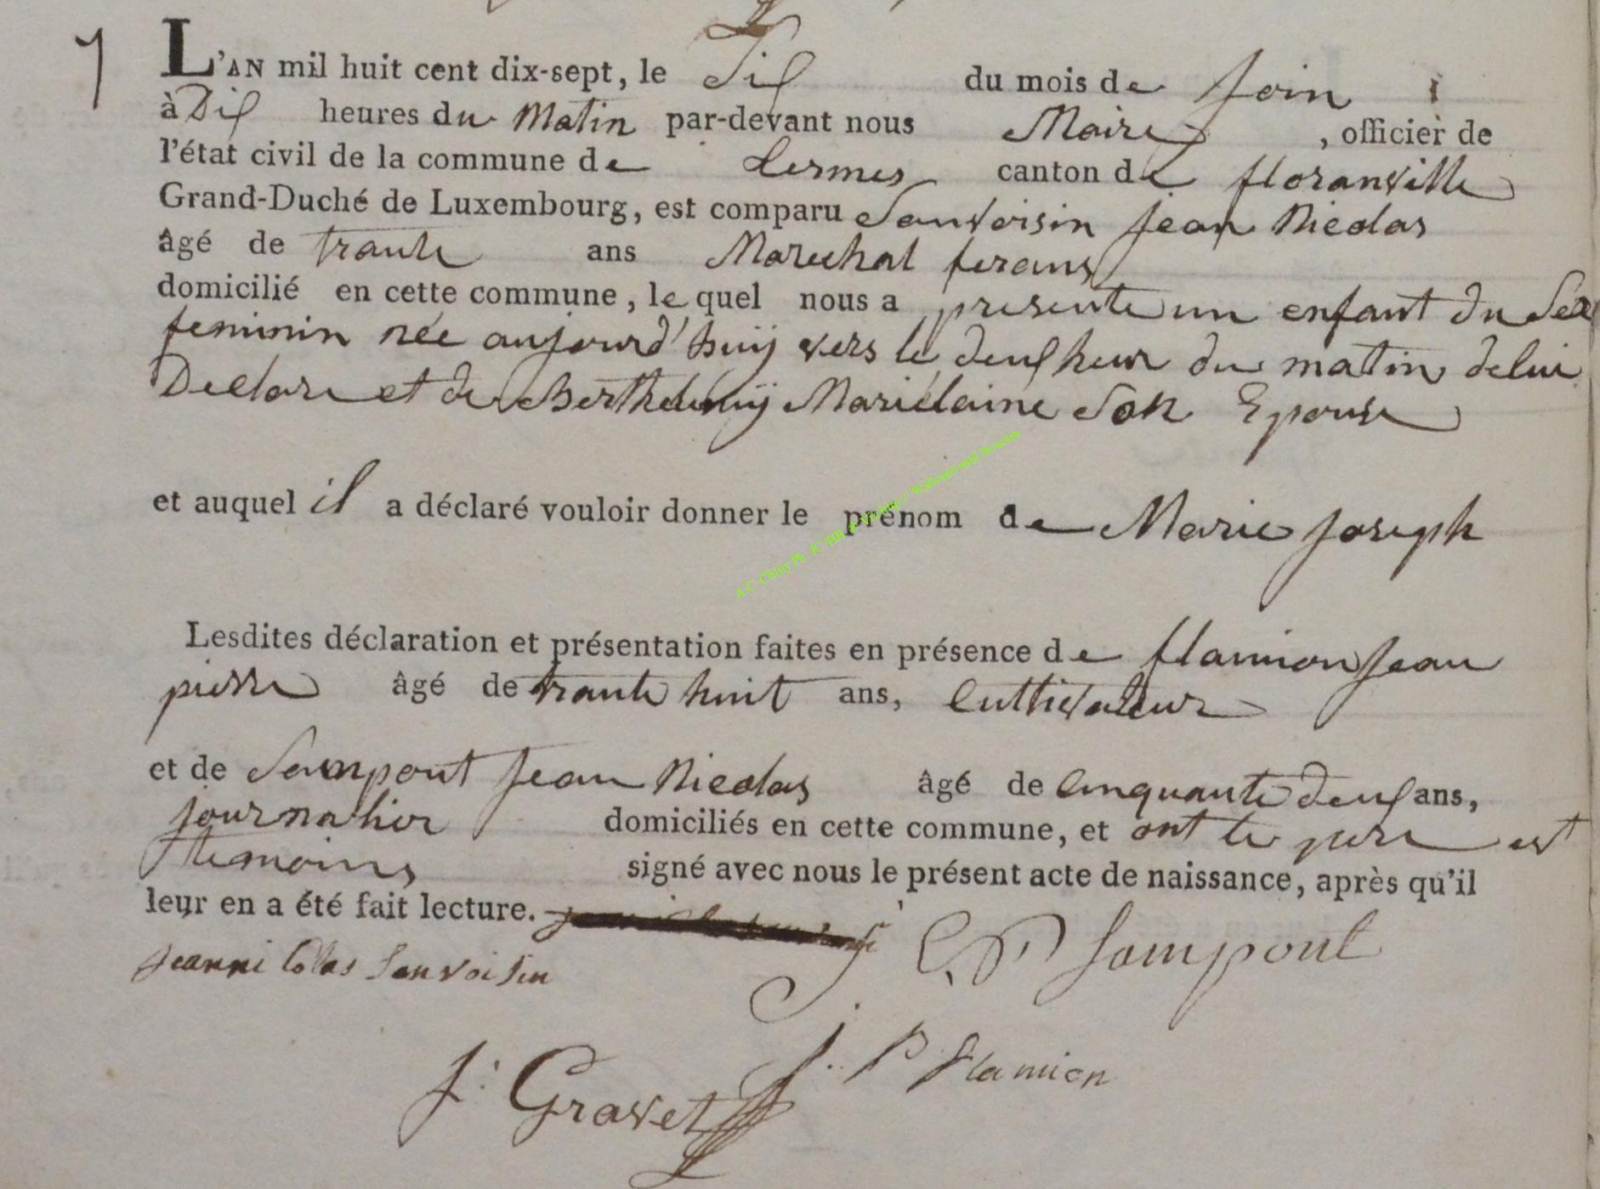 7
L'AN mil huit cent dix-sept, le Six du mois de Join
à Dix heures du Matin par-devant nous Maire, officier de
l'état civil de la commune de Lermes canton de floranville
Grand-Duché de Luxembourg, est comparu Sanvoisin jean Nicolas
âgé de trante ans Marechal ferans
domicilié en cette commune, lequel nous a presente un enfant du Sex
feminin née aujourd'huij vers le deux heur du matin de lui
Declare et de Berthelemij Marielaine Son Epouse
et auquel il a déclaré vouloir donner le prénom de Marie joseph
Lesdites déclaration et présentation faites en présence de flamion Jean
pierre âgé de trante huit ans, Cultivateur
et de Sampont Jean Nicolas âgé de Cinquante deux ans,
journalier domiciliés en cette commune, et ont le pere est
temoins signé avec nous le présent acte de naissance, après qu'il
leur en a été fait lecture.
jeanni Colas Sanvoisin Sampont
J. P flamion
J. Gravet